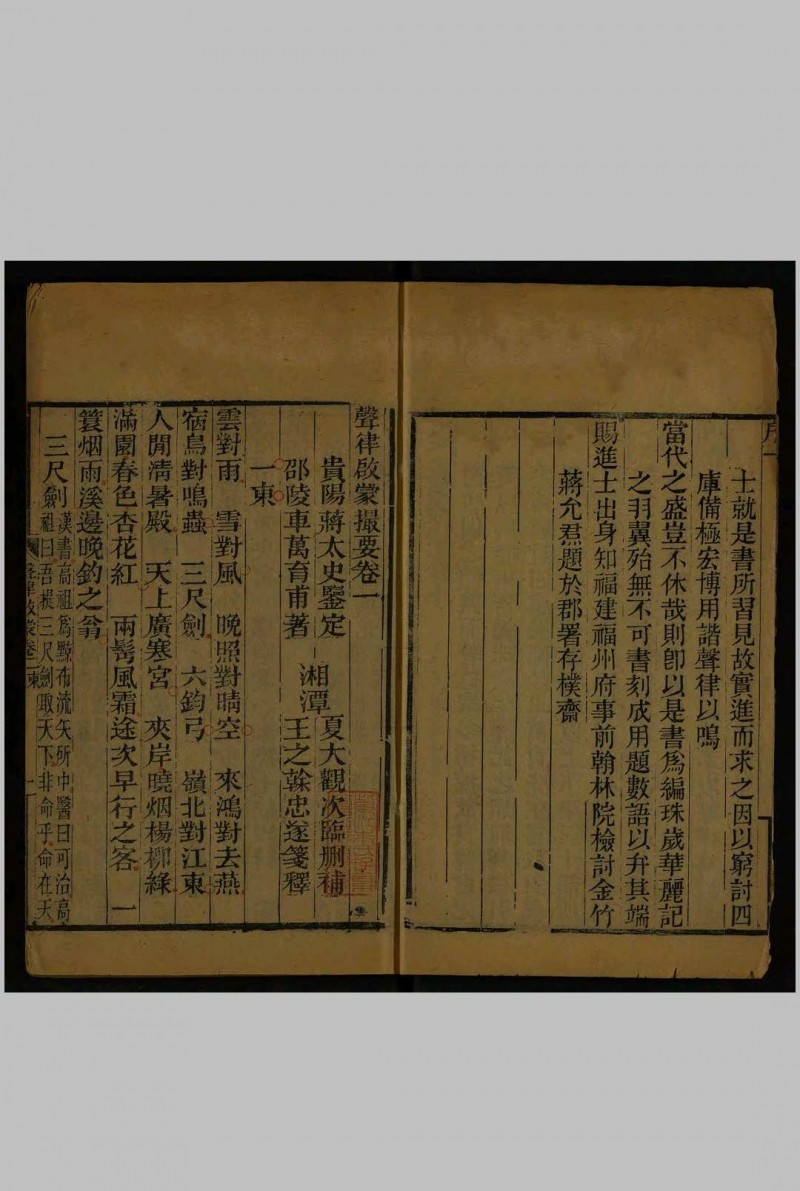 士就是書所習見故實進而求之因以窮討四
庫備極宏博用諧聲律以鳴
當代之盛豈不休哉則卽以是書爲編珠歲華麗記
之羽翼殆無不可書刻成用題數語以弁其端
賜進士出身知福建福州府事前翰林院檢討金竹
蔣允焄題於郡署存樸齋
聲律啟蒙撮要卷一
貴陽蔣太史鑒定 夏大觀次臨刪補
邵陵車萬育甫著 湘潭 王之榦忠遂箋釋
一東
雲對雨 雪對風 晚照對晴空 來鴻對去燕
宿鳥對鳴蟲 三尺劍 六鈞弓 嶺北對江東
人閒清暑殿 天上廣寒宮 夾岸曉烟楊柳綠
滿園春色杏花紅 兩鬂風霜途次早行之客 一
簑烟雨溪邊晚釣之翁
三尺劍 漢書高祖爲黥布流矢所中醫曰可治高
祖曰吾提三尺劍取天下非命乎命在天
聲律啟蒙卷一 東 一